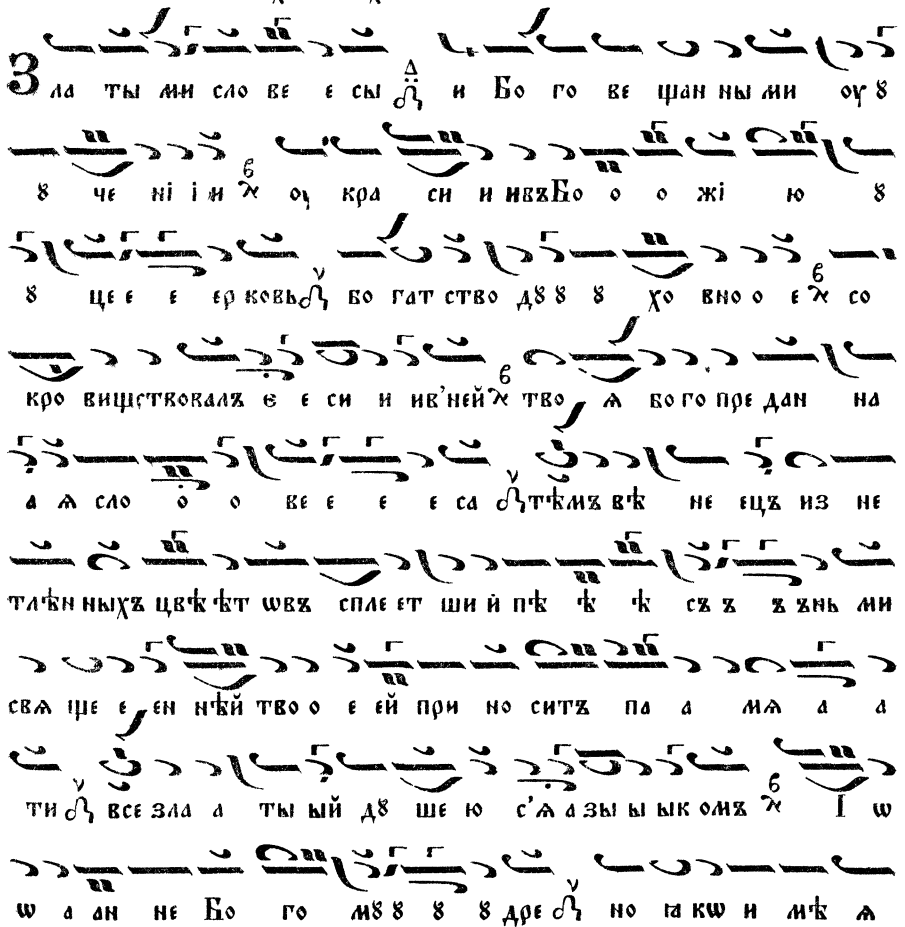 З ла ты ми сло ве е сы и Бо го ве щан ны ми оу ꙋ
ꙋ че ні і и оу кра си и ивъ Бо о о жі ю ꙋ
ꙋ це е е ер ковь бо гат ство дꙋ ꙋ ꙋ хо вно о е со
кро вищствовалъ є е си и ив’ней тво ѧ бо го пре дан на
а ѧ сло о о ве е е е са тѣмъ вѣ не ецъ из не
тлѣн ныхъ цвѣ ѣт ѡвъ спле ет ши й пѣ ѣ ѣ съ ъ ъ ънь ми
свѧ ще е ен нѣй тво о е ей при но ситъ па а мѧ а а
ти все зла а ты ый дꙋ ше ю с’ѧ а зы ы ык омъ І ѡ
ѡ а ан не Бо го мꙋ ꙋ ꙋ ꙋ дре но ꙗ кѡ и мѣ ѧ